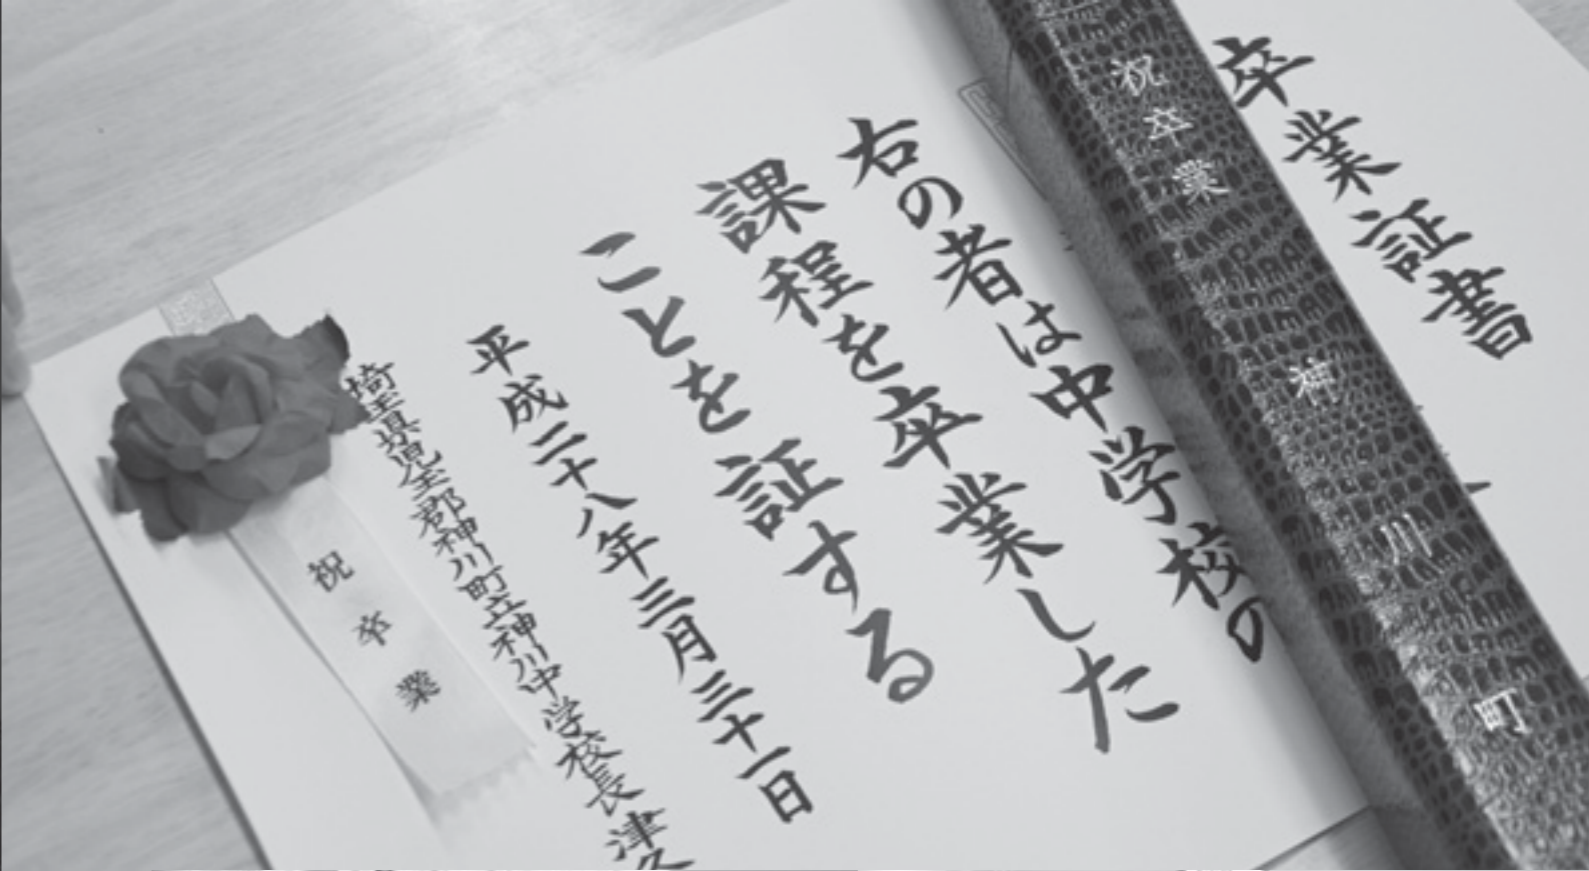 卒業証書
祝卒業 神川町
右の者は中学校の
課程を卒業した
ことを証する
平成二十八年三月三十一日
埼玉県児玉郡神川町立神川中学校長 津久
祝卒業